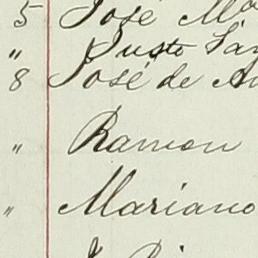 5 José Ma
" Justo
8 José de
" Ramon
" Mariano